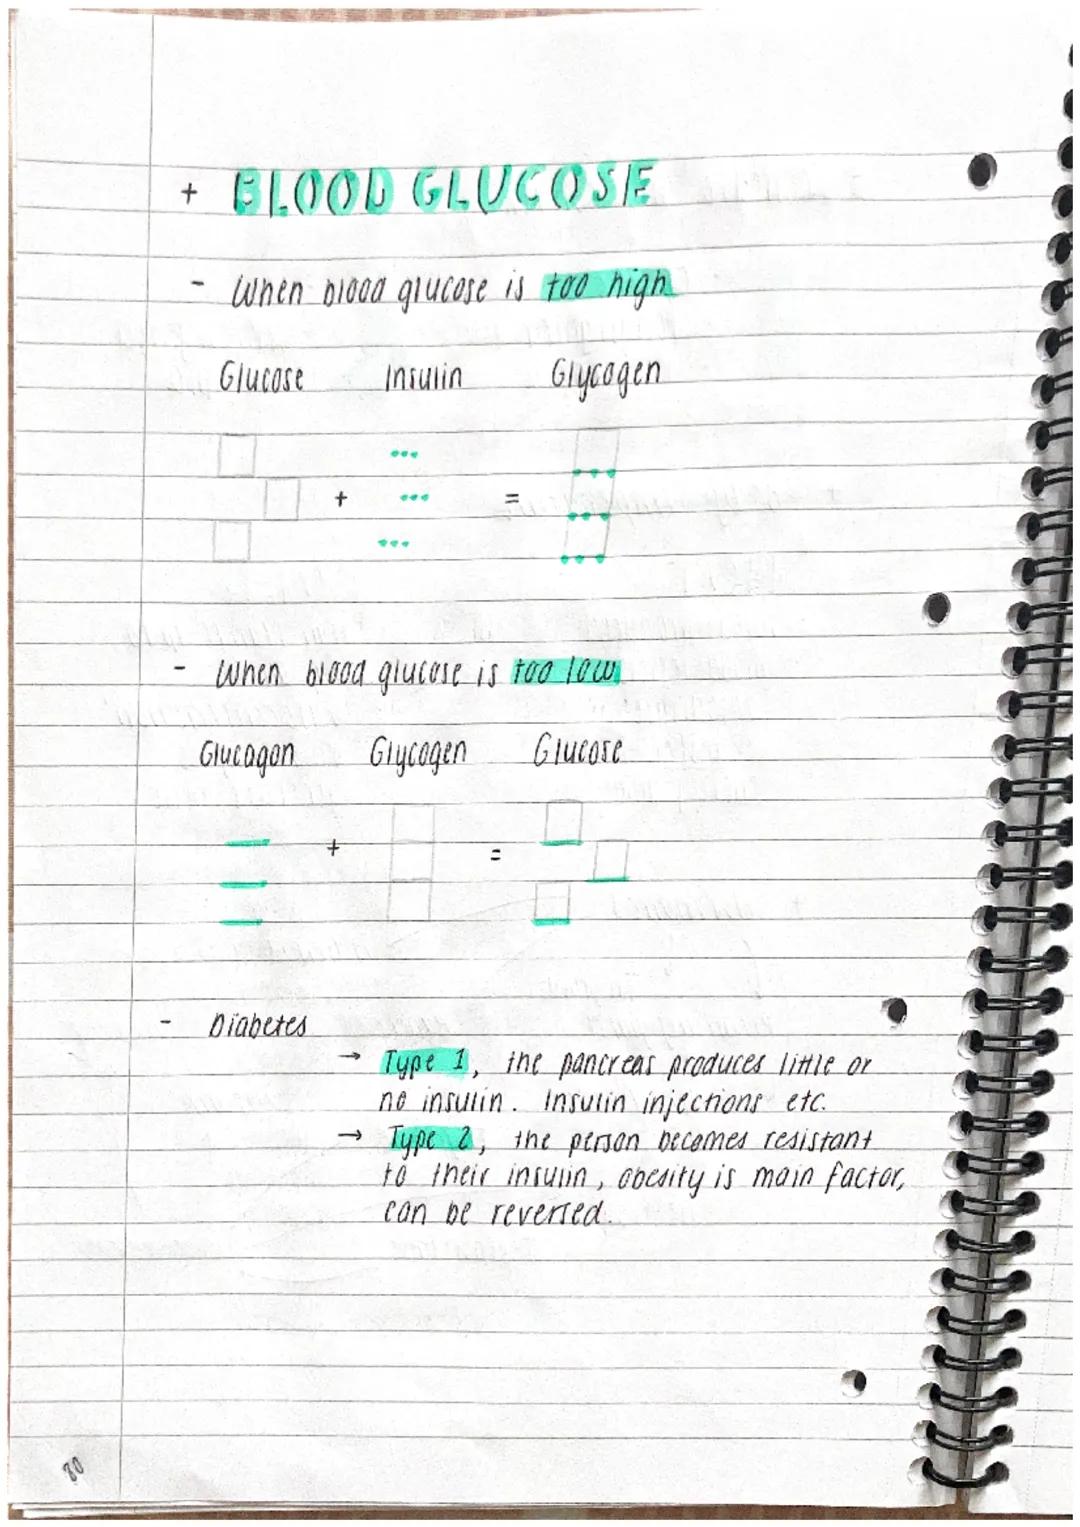 + BLOOD GLUCOSE
- When blood glucose is too high
Glucose Insulin Glycogen
+ =
- When blood glucose is too low
Glucagon Glycogen Glucose
+ =
- Diabetes
→ Type 1, the pancreas produces little or
no insulin. Insulin injections etc.
→ Type 2, the person becomes resistant
to their insulin, obesity is main factor,
can be reversed.
80